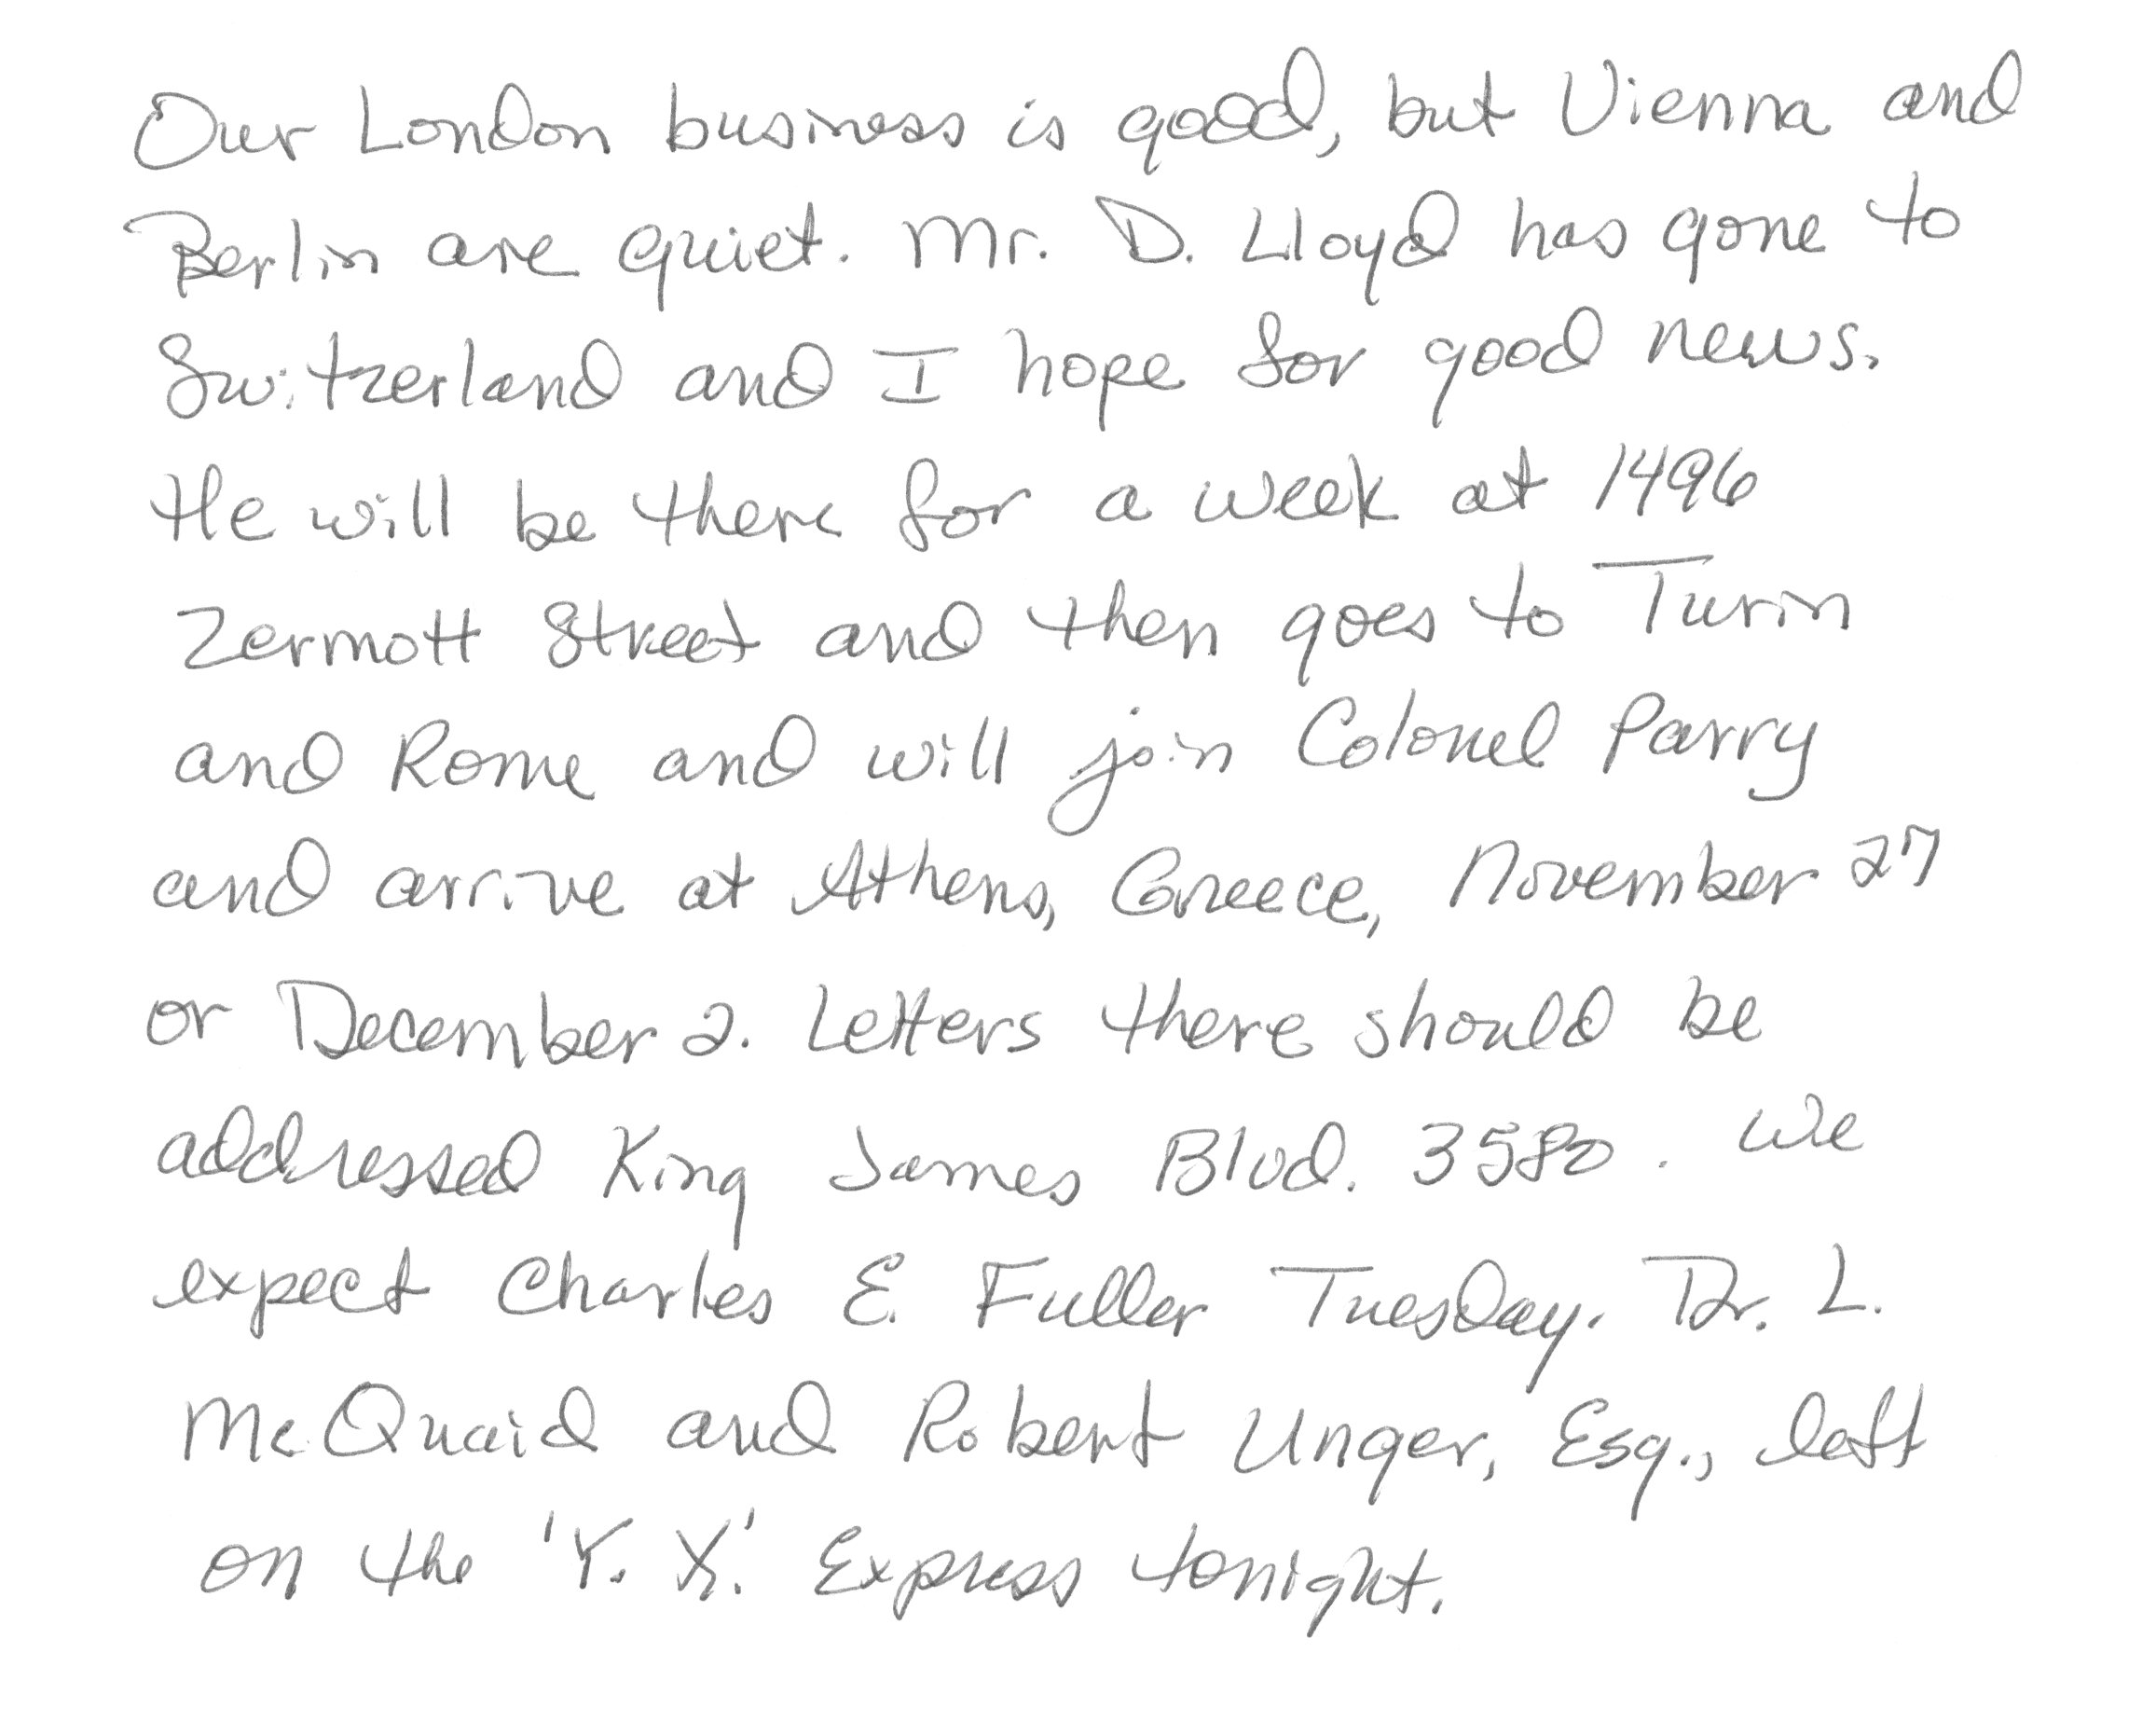 Our London business is good, but Vienna and
Berlin are quiet. Mr. D. Lloyd has gone to
Switzerland and I hope for good news.
He will be there for a week at 1496
Zermott Street and then goes to Turin
and Rome and will join Colonel Parry
and arrive at Athens, Greece, November 27
or December 2. Letters there should be
addressed King James Blvd. 3580. We
expect Charles E. Fuller Tuesday. Dr. L.
McQuaid and Robert Unger, Esq., left
on the 'Y. X.' Express tonight.